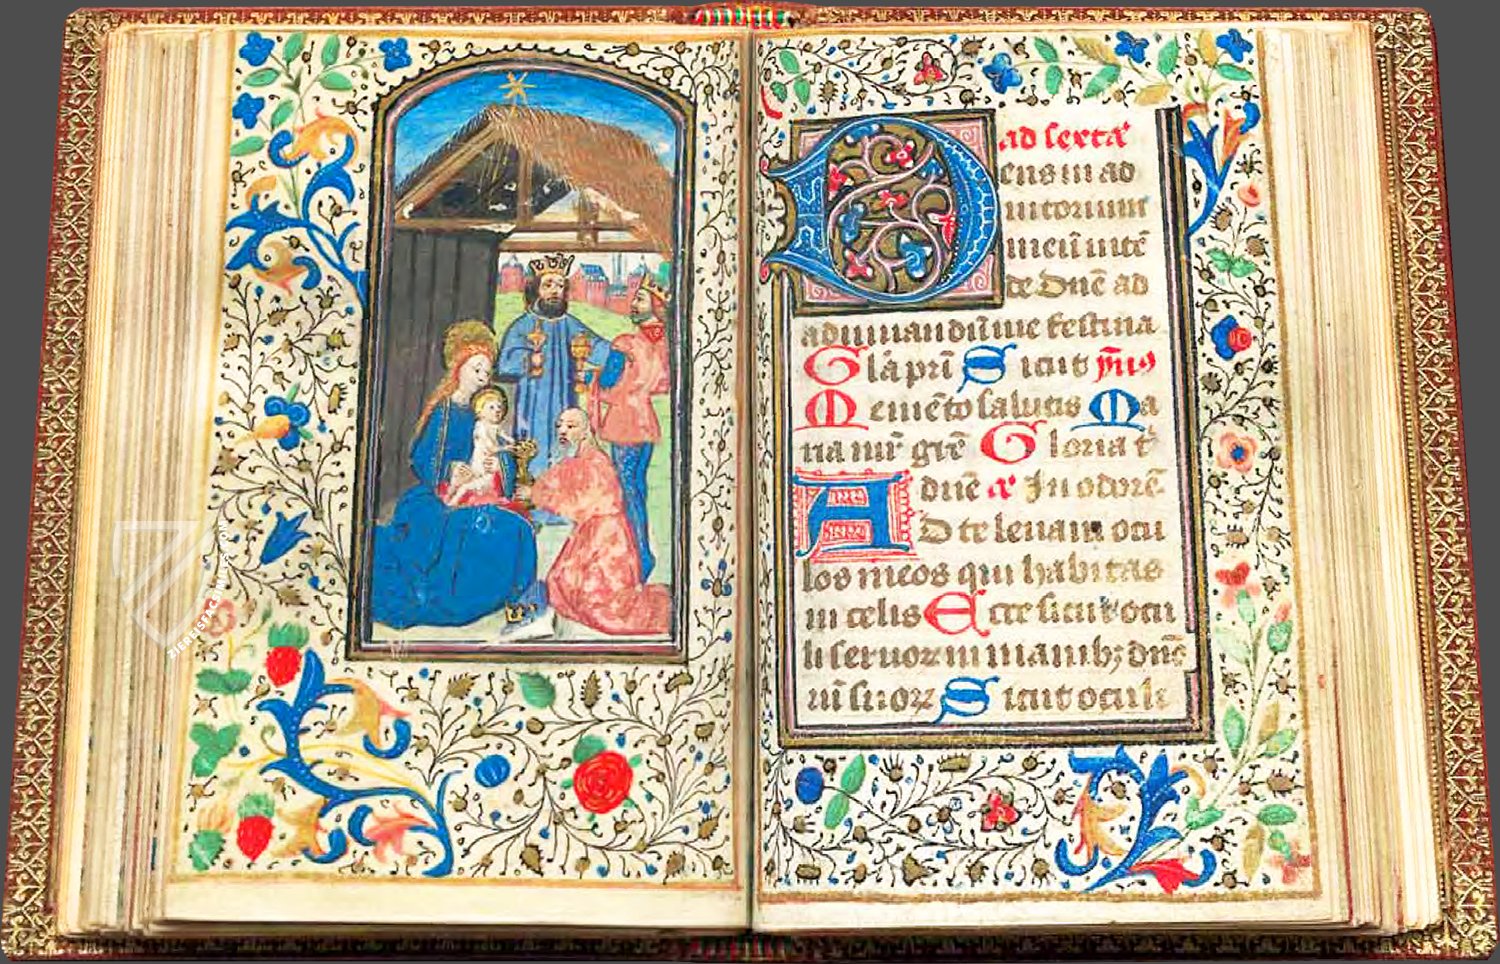 ad sextā
Deus in ad
iutorium
meū intē
de Dn̄e ad
adiuuandū me festina
Glā pr̄i Sicut ym̄s
Memēto salutis Ma
ria mr̄ grē Gloria t
dn̄e ā In odorē
AD te leuaui ocu
los meos qui habitas
in celis Ecce sicut ocu
li seruorꝫ in manibꝫ dn̄o
ꝝ suorꝝ Sicut oculi
ZIEREISFACSIMILES.COM